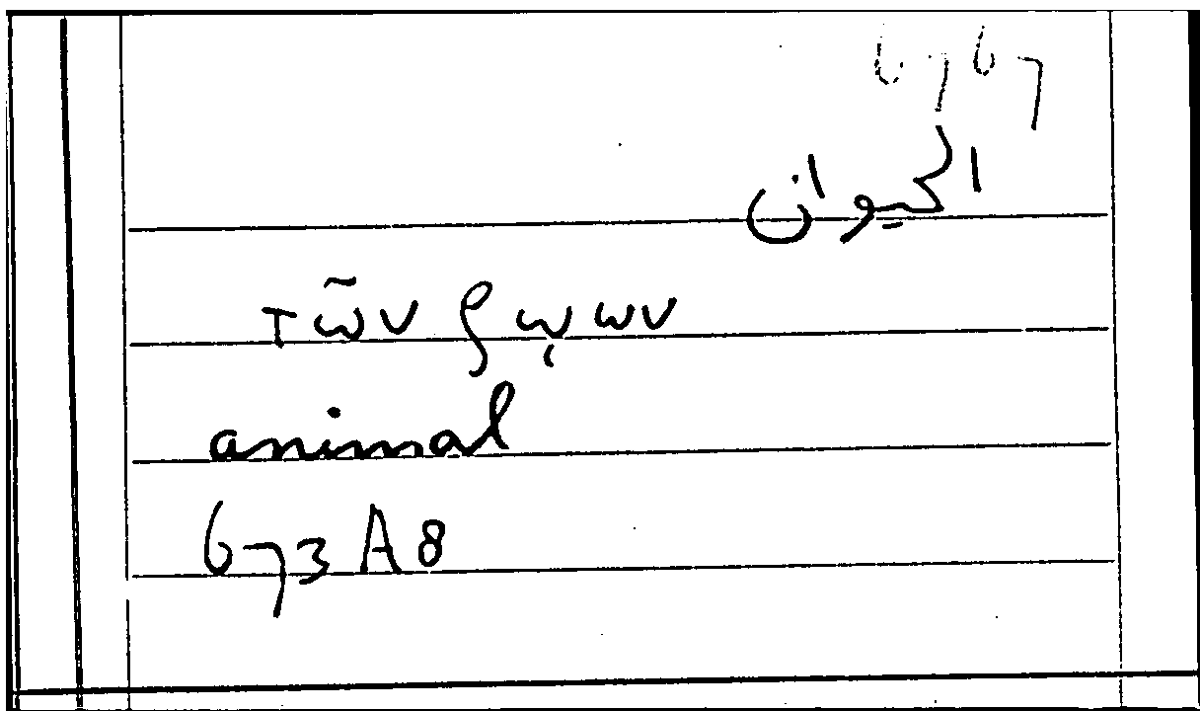 6767
الحيوان
τῶν ζῳων
animal
673 A8